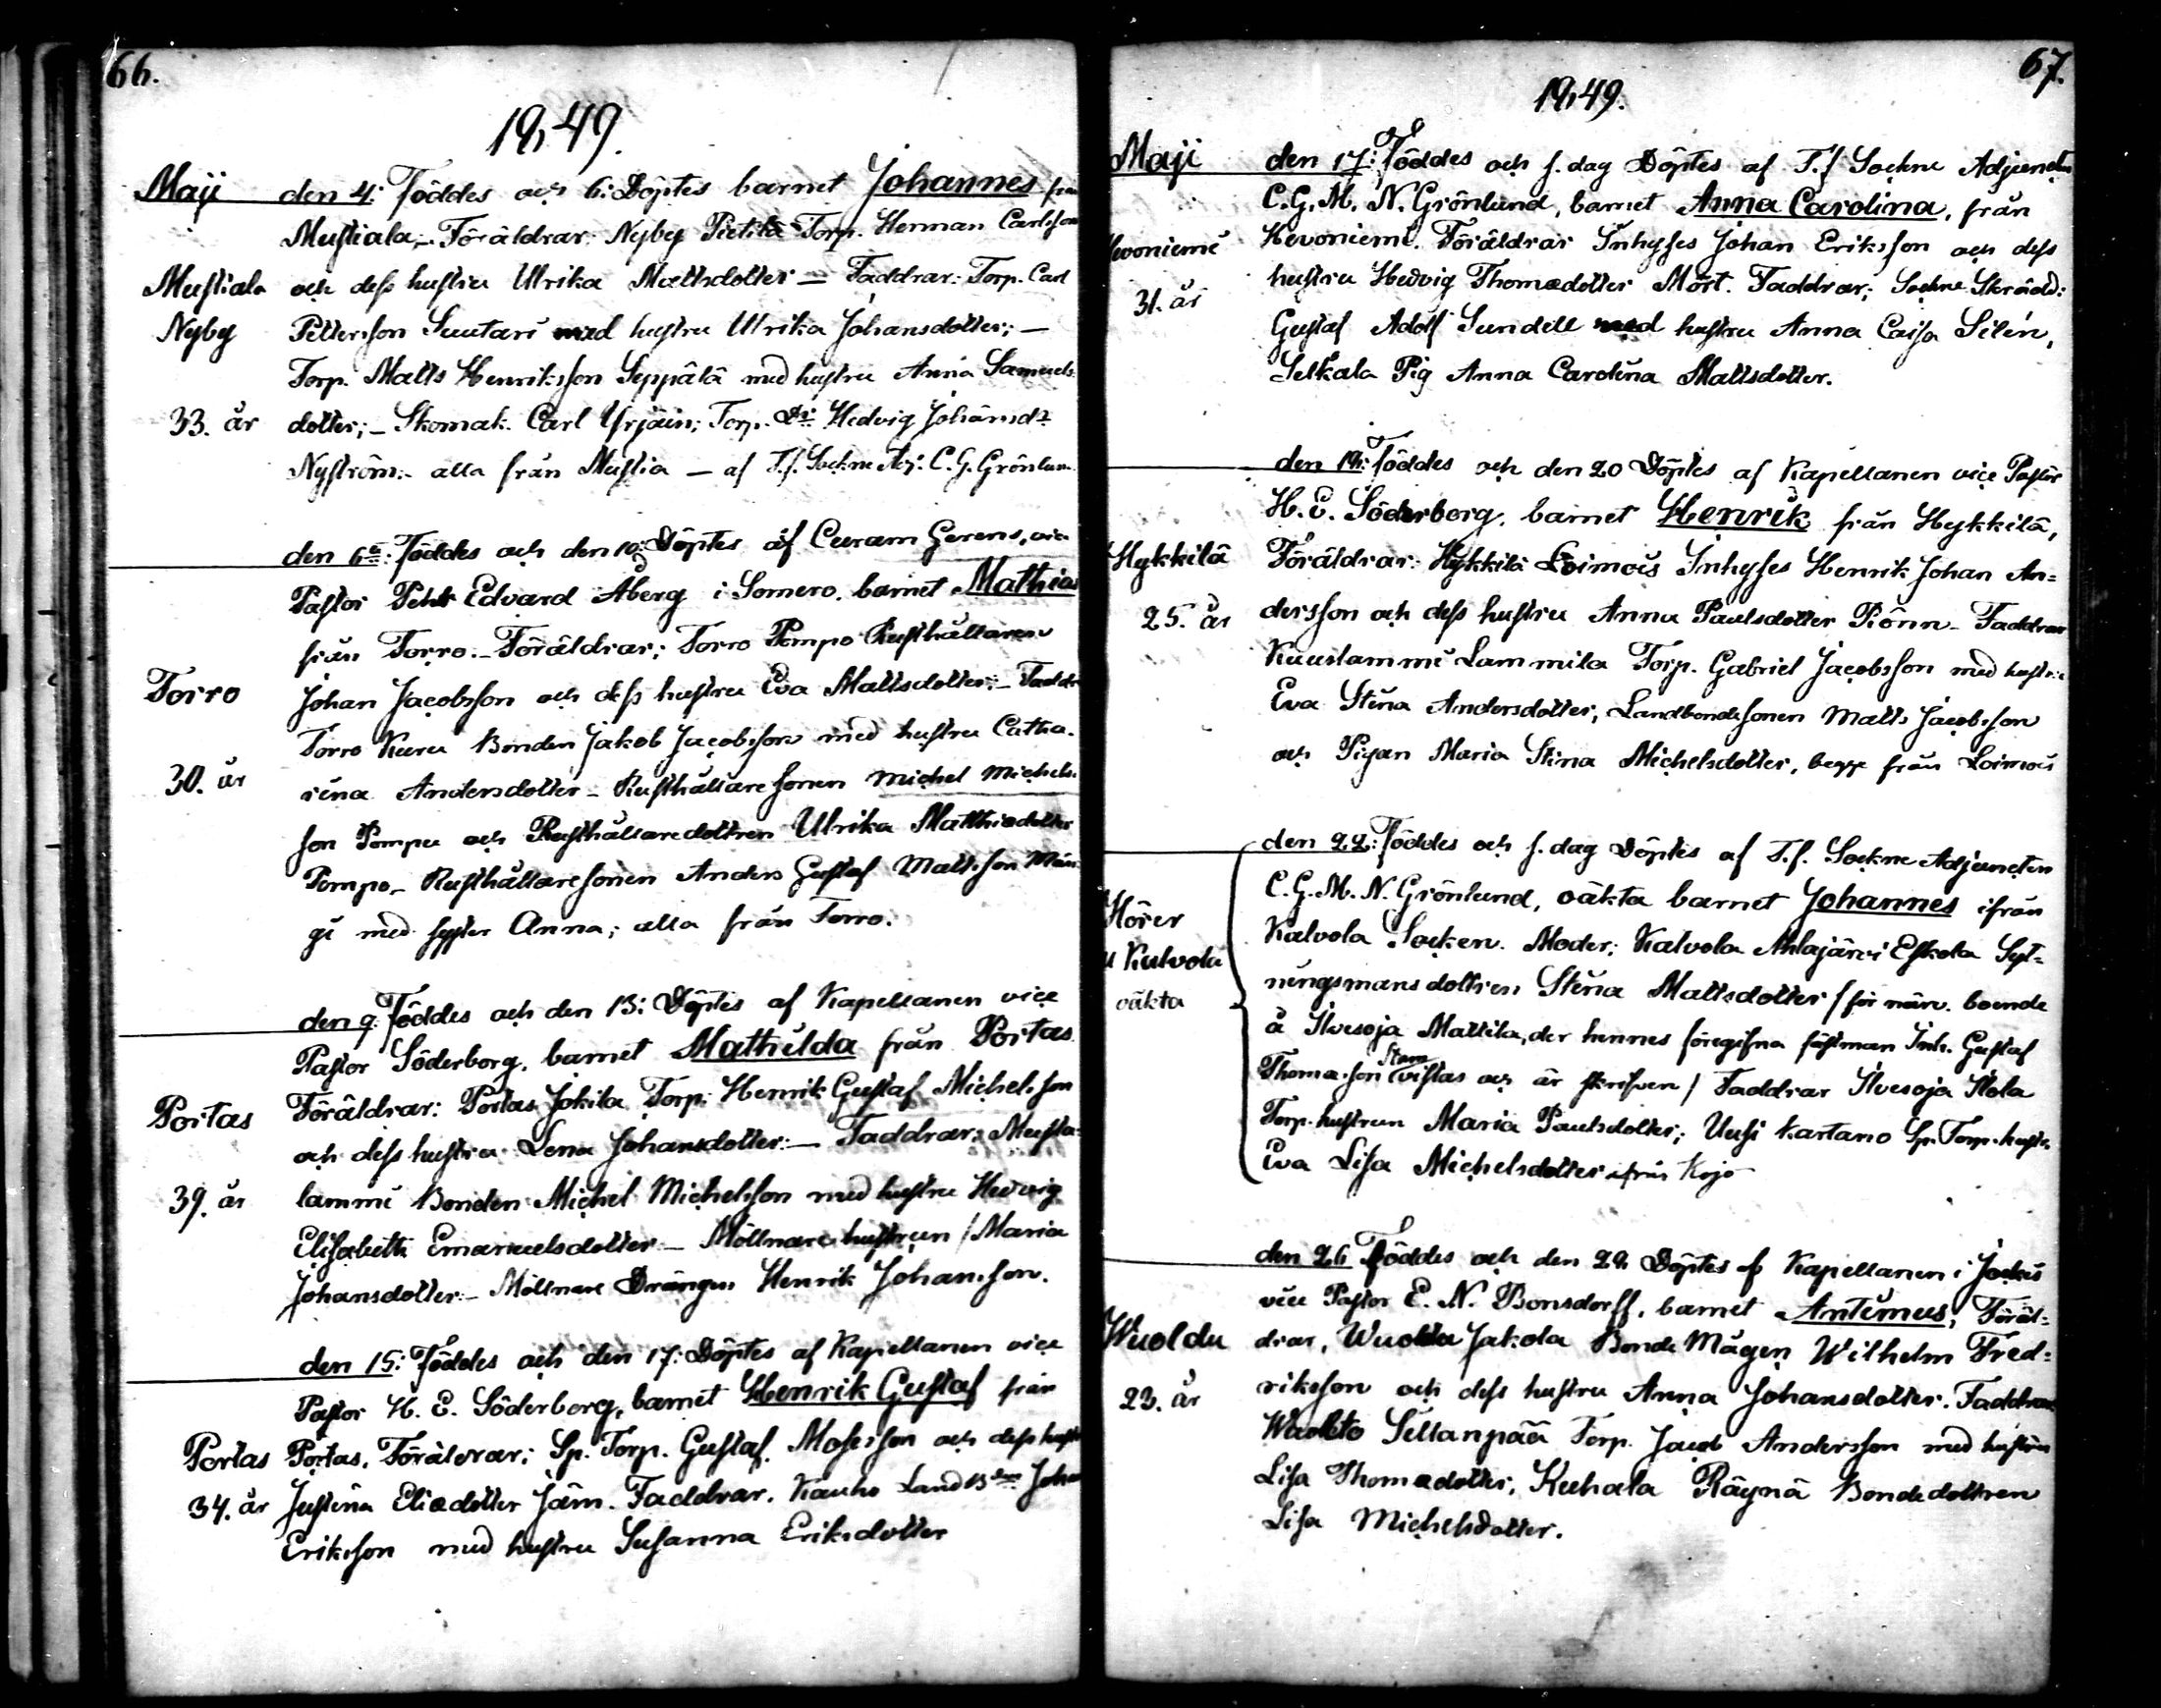 66.
1849.
Maji den 4: Föddes och 6: Döptes barnet Johannes från
Mustiala, Föräldrar: Nyby Pietilä Torp. Herman Carlsson
Mustiala och dess hustru Ulrika Mattsdotter — Faddrar: Torp. Carl
Nyby Pettersson Suutari med hustru Ulrika Johansdotter; —
Torp. Matts Henriksson Seppälä med hustru Anna Samuels
33. år dotter; — Skomak. Carl Yrjäin; Torp. Dr Hedvig Johansdr
Nyström: alla från Mustia — af T.f. Sockne Adj: C. G. Grönlun
den 6te: Föddes och den 10: Döptes af Curam Gerens, vice
Pastor Petr Edvard Åberg i Somero, barnet Mathias
från Torro. — Föräldrar; Torro Pompo Rusthållaren
Torro Johan Jacobsson och dess hustru Eva Mattsdotter: — Faddr
Torro Kuru Bonden Jakob Jacobsson med hustru Catha-
30. år rina Andersdotter — Rusthållare Sonen Michel Michels-
son Pompu och Rusthållaredottren Ulrika Matthiedotter
Pompo — Rusthållaresonen Anders Gustaf Mattsson Män
gi med syster Anna; alla från Torro.
den 9: Föddes och den 13: Döptes af Kapellanen vice
Pastor Söderborg, barnet Mathilda från Portas
Portas Föräldrar: Portas Jokila Torp. Henrik Gustaf Michelsson
och dess hustru Lena Johansdotter: — Faddrar: Musta-
39. år lammi Bonden Michel Michelsson med hustru Hedvig
Elisabeth Emanuelsdotter — Möllnare hustrun Maria
Johansdotter — Möllnare Drängen Henrik Johansson.
den 15: Föddes och den 17: Döptes af Kapellanen vice
Pastor H. E. Söderborg, barnet Henrik Gustaf från
Portas Portas, Föräldrar; Sp. Torp. Gustaf Mosesson och dess hustr
34. år Justina Eliedotter Järn. Faddrar. Kauho Land B Joh
Eriksson med hustru Susanna Eriksdotter
67.
1849.
Maji den 17: Föddes och s. dag Döptes af T.f Sockne Adjuncten
C. G. M. N. Grönlund, barnet Anna Carolina, från
Hevoniemi Hevoniemi. Föräldrar Inhyses Johan Eriksson och dess
31. år hustru Hedvig Thomedotter Mört. Faddrar; Sockne Skrädd:
Gustaf Adolf Sundell med hustru Anna Caisa Silén,
Selkala Pig Anna Carolina Mattsdotter.
den 18: Föddes och den 20 Döptes af Kapellanen vice Pastor
H. E. Söderborg, barnet Henrik från Hykkilä,
Hykkilä Föräldrar: Hykkilä Loimois Inhyses Henrik Johan An-
25. år dersson och dess hustru Anna Paulsdotter Rönn — Faddrar
Kuuslammi Lammila Torp. Gabriel Jacobsson med hustru
Eva Stina Andersdotter, Landbondesonen Matts Jacobsson
och Pigan Maria Stina Michelsdotter, begge från Loimois
den 22: Föddes och s. dag Döptes af T.f. Sockne Adjuncten
C. G. M. N. Grönlund, oäkta barnet Johannes ifrån
Hörer Kalvola Socken. Moder; Kalvola Ahlajärvi Eskola Syt-
Kalvola ningsmans dottren Stina Mattsdotter / för närv. boende
oäkta å Ilvesoja Mattila, der hennes föregifna fästman Inh. Gustaf
Thomasson Stam vistas och är skrifven / Faddrar Ilvesoja Ilola
Torp. hustrun Maria Paulsdotter; Uusi kartano Sp. Torp. hustr.
Eva Lisa Michelsdotter ifrån Kojo
den 26 Föddes och den 28 Döptes af Kapellanen i Jockis
vice Pastor E. N. Bonsdorff, barnet Antimus, Föräl-
Wuoldu drar, Wuolda Jakola Bonde Mågen Wilhelm Fred-
23. år riksson och dess hustru Anna Johansdotter. Faddrar
Waolto Sillanpää Torp. Jacob Andersson med hustru
Lisa Thomedotter, Kuhala Räynä Bondedottren
Lisa Michelsdotter.